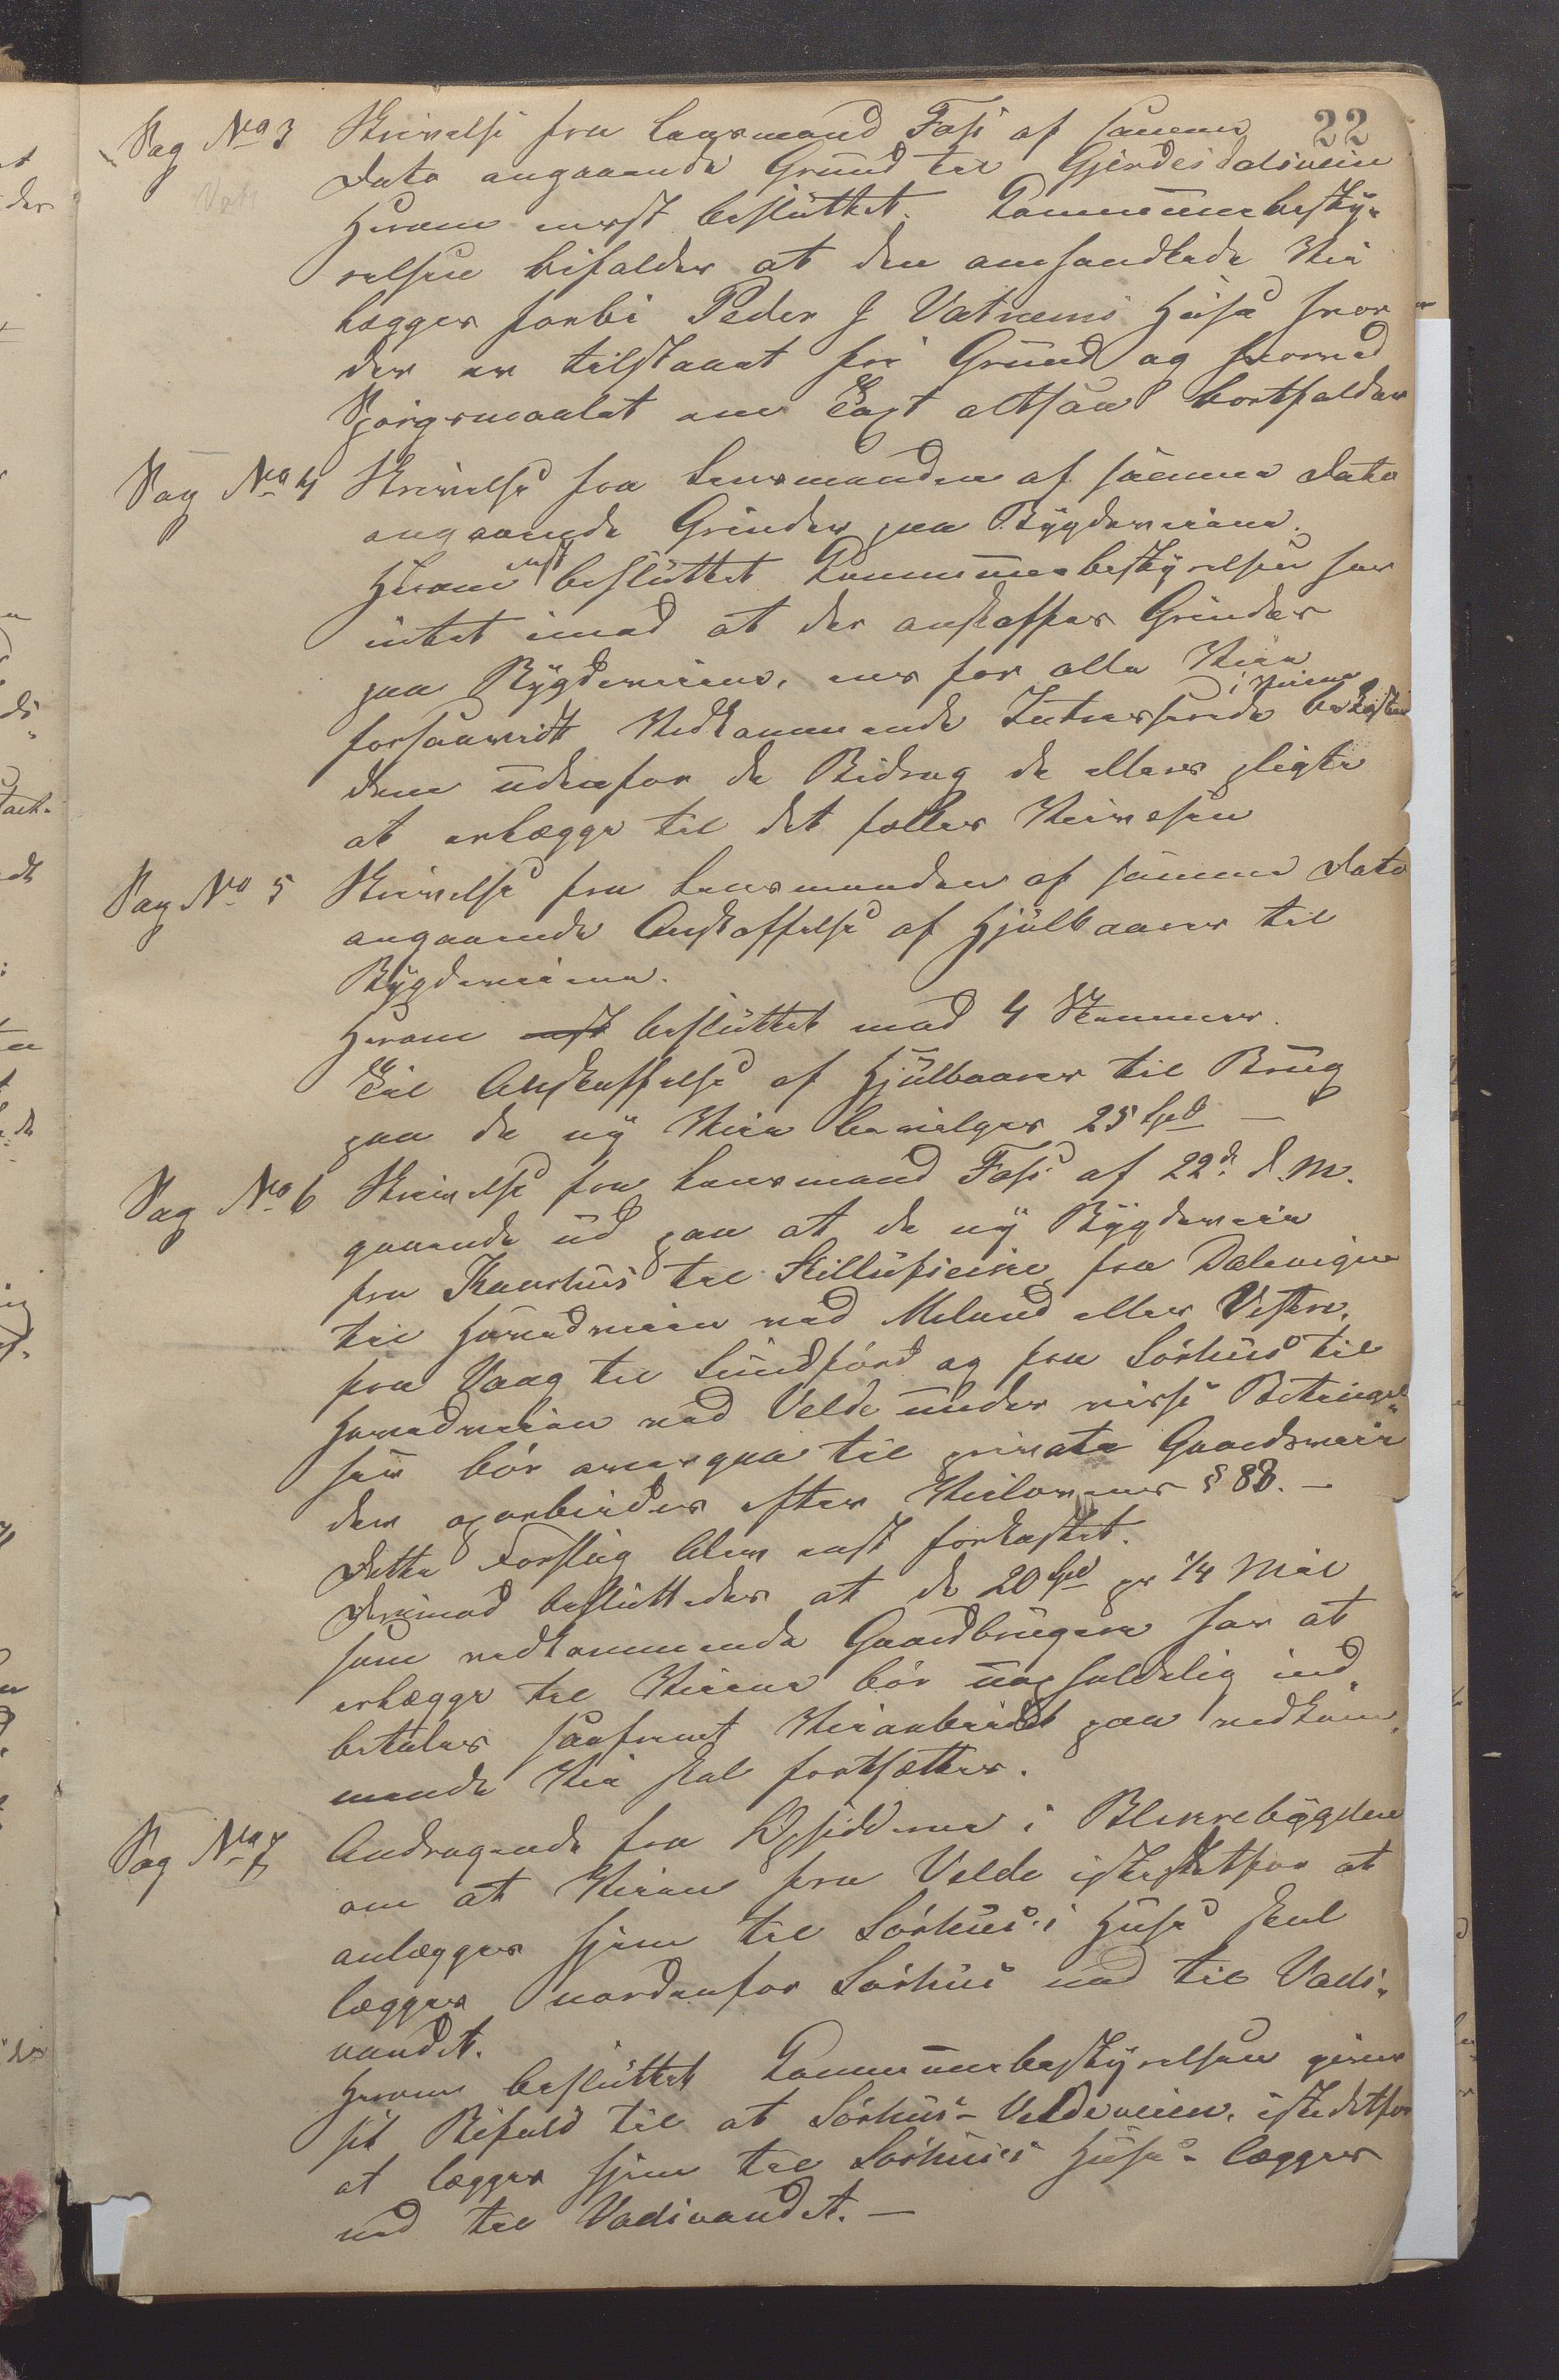 22
Sag No 3 Skrivelse fra Lensmand Fosse af samme
Dato angaaende Grund til Gjerdesdalsveien
Herom enst besluttet. Kommunebesty-
relsen bifalder at den omhandlede Vei
lægges forbi Peder J Vatnems Huse hvor
der er tilstaaet fri Grund og hvorved
Spørgsmaalet om Taxt altsaa bortfalder
Sag No 4 Skrivelse fra Lensmanden af samme Dato
angaaende Grinder paa Bygdeveiene.
Herom enst besluttet Kommunebestyrelsen har
intet imod at der anskaffes Grinder
paa Bygdeveiene, ens for alle Veie
forsaavidt Vedkommende Interesserede i Veiene bekoster
dem udenfor de Bidrag de ellers pligte
at erlægge til det fælles Veivesen
Sag No 5 Skrivelse fra Lensmanden af samme Dato
angaaende Anskaffelse af Hjulbaarer til
Bygdeveiene.
Herom enst besluttet med 4 Stemmer.
Til Anskaffelse af Hjulbaarer til Brug
paa de ny Veie bevilges 25 Spd —
Sag No 6 Skrivelse fra Lensmand Fosse af 22de d. M.
gaaende ud paa at de ny Bygdeveie
fra Knarhus til Skillufseine, fra Dalevigen
til Hovedveien ved Meland eller Vestre,
fra Vaag til Sundførd og fra Sørhus til
Hovedveien ved Velde under visse Betingel-
ser bør overgaa til private Gaardsveie
der oparbeides efter Veilovenes § 88. —
Dette Forslag blev enst forkastet.
Derimod besluttedes at de 20 Spd pr 1/4 Mil
som vedkommende Gaardbrugere har at
erlægge til Veiene bør uopholdelig ind
betales saafremt Veiarbeidet paa vedkom-
mende Vei skal fortsættes.
Sag No 7 Andragende fra Opsidderne i Blikrebygden
om at Veien fra Velde istedetfor at
anlægges hjem til Sørhus's Huse skal
lægges nordenfor Sørhus ned til Vads-
vandet.
Herom besluttet Kommunebestyrelsen giver
sit Bifald til at Sørhus-Veldeveien, istedetfor
at lægges hjem til Sørhus's Huse - lægges
ned til Vadsvandet. —